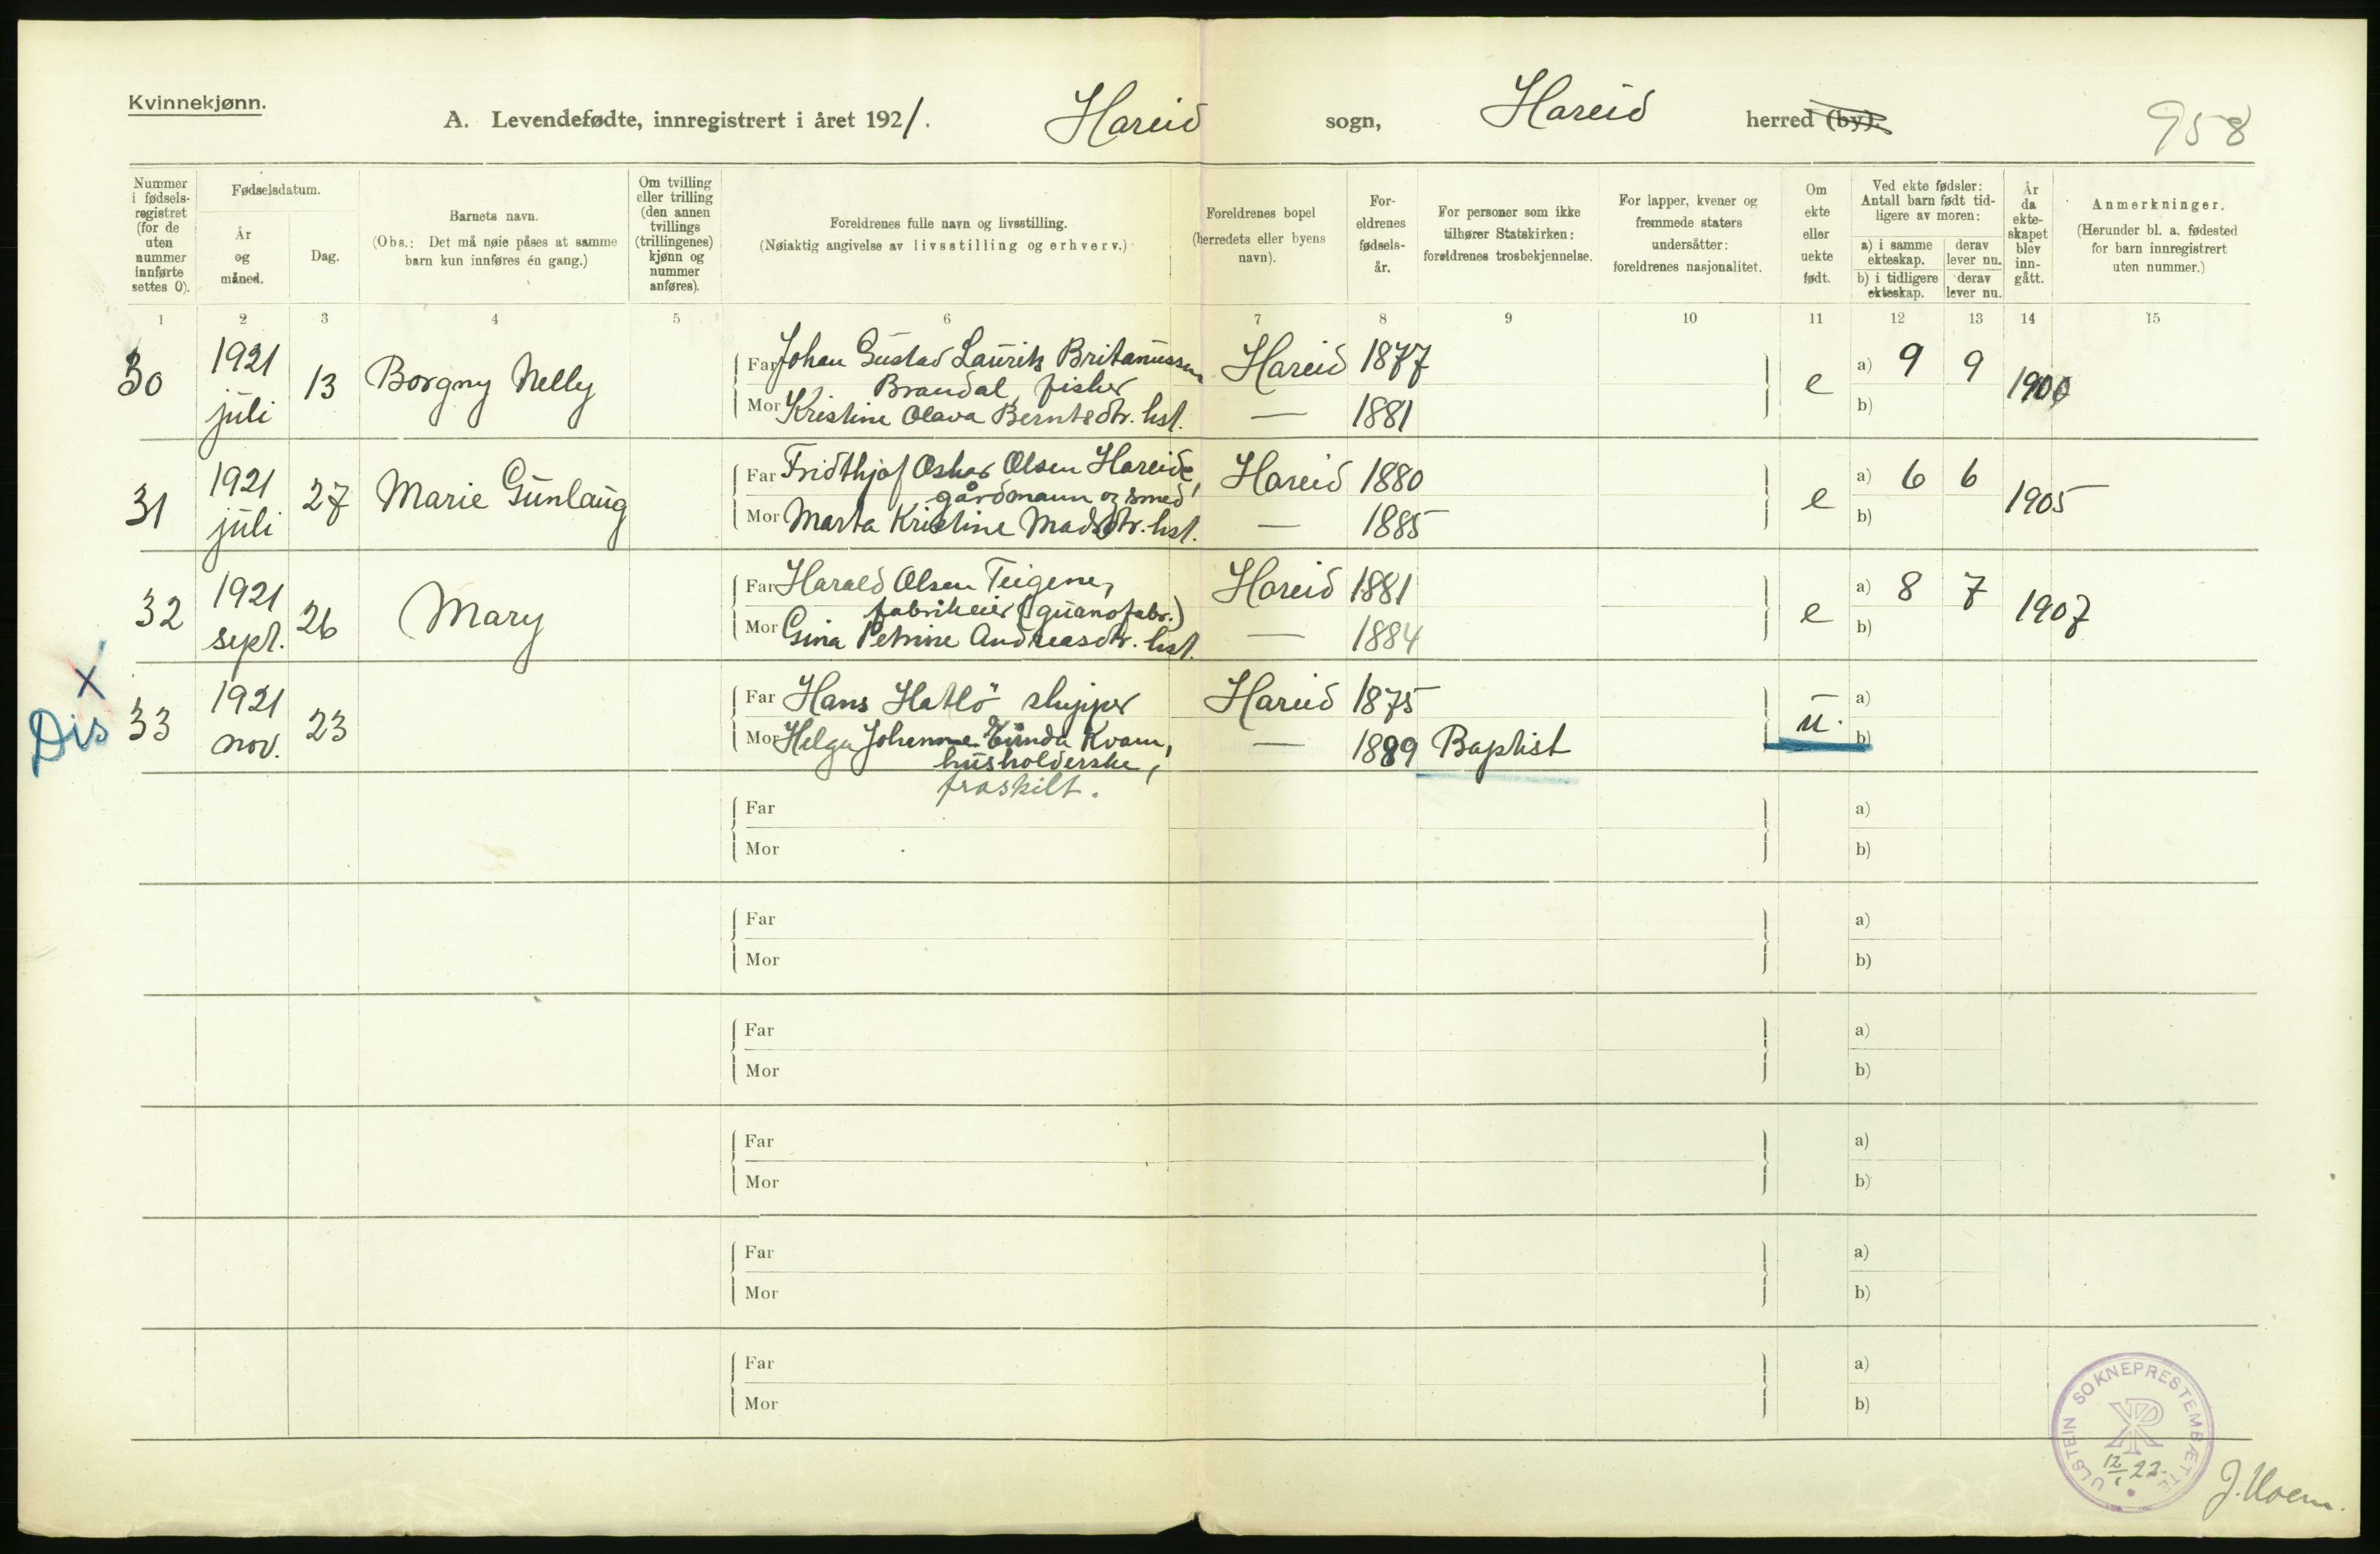 Kvinnekjønn.
A. Levendefødte, innregistrert i året 1921. Hareid sogn, Hareid herred (by).
958
Nummer i fødsels-registret (for de uten nummer innførte settes 0).
Fødselsdatum.
År og måned.
Dag.
Barnets navn.
(Obs.: Det må nøie påses at samme barn kun innføres én gang.)
Om tvilling eller trilling (den annen tvillings (trillingenes) kjønn og nummer anføres).
Foreldrenes fulle navn og livsstilling.
(Nøiaktig angivelse av livsstilling og erhverv.)
Foreldrenes bopel (herredets eller byens navn).
For-eldrenes fødsels-år.
For personer som ikke tilhører Statskirken: foreldrenes trosbekjennelse.
For lapper, kvener og fremmede staters undersåtter: foreldrenes nasjonalitet.
Om ekte eller uekte født.
Ved ekte fødsler: Antall barn født tid-ligere av moren:
a) i samme ekteskap.
derav lever nu.
b) i tidligere ekteskap.
derav lever nu.
År da ekte-skapet blev inn-gått.
Anmerkninger.
(Herunder bl. a. fødested for barn innregistrert uten nummer.)
1 2 3 4 5 6 7 8 9 10 11 12 13 14 15
30 1921 juli 13 Borgny Nelly
Far Johan Gustav Laurits Britanussen Hareid 1877
Brandal, fisker
Mor Kristine Olava Berntsdtr. hst. — 1881
e a) 9 9 1900
b)
31 1921 juli 27 Marie Gunlaug
Far Fridthjof Oskar Olsen Hareide, Hareid 1880
gårdmann og smed
Mor Marta Kristine Madsdtr. hst. — 1885
e a) 6 6 1905
b)
32 1921 sept. 26 Mary
Far Harald Olsen Teigene, Hareid 1881
fabrikeier (guanofabr.)
Mor Gina Petrine Andreasdtr. hst. — 1884
e a) 8 7 1907
b)
x
Dis
33 1921 nov. 23
Far Hans Hatlö skipper Hareid 1875
Mor Helga Johenne Kvam, — 1889 Baptist
husholderske,
fraskilt.
u. a)
b)
Far a)
Mor b)
Far a)
Mor b)
Far a)
Mor b)
Far a)
Mor b)
Far a)
Mor b)
Far a)
Mor b)
ULSTEIN SOKNEPRESTEMBÆTTE
12/1 22.
J. Hoem.